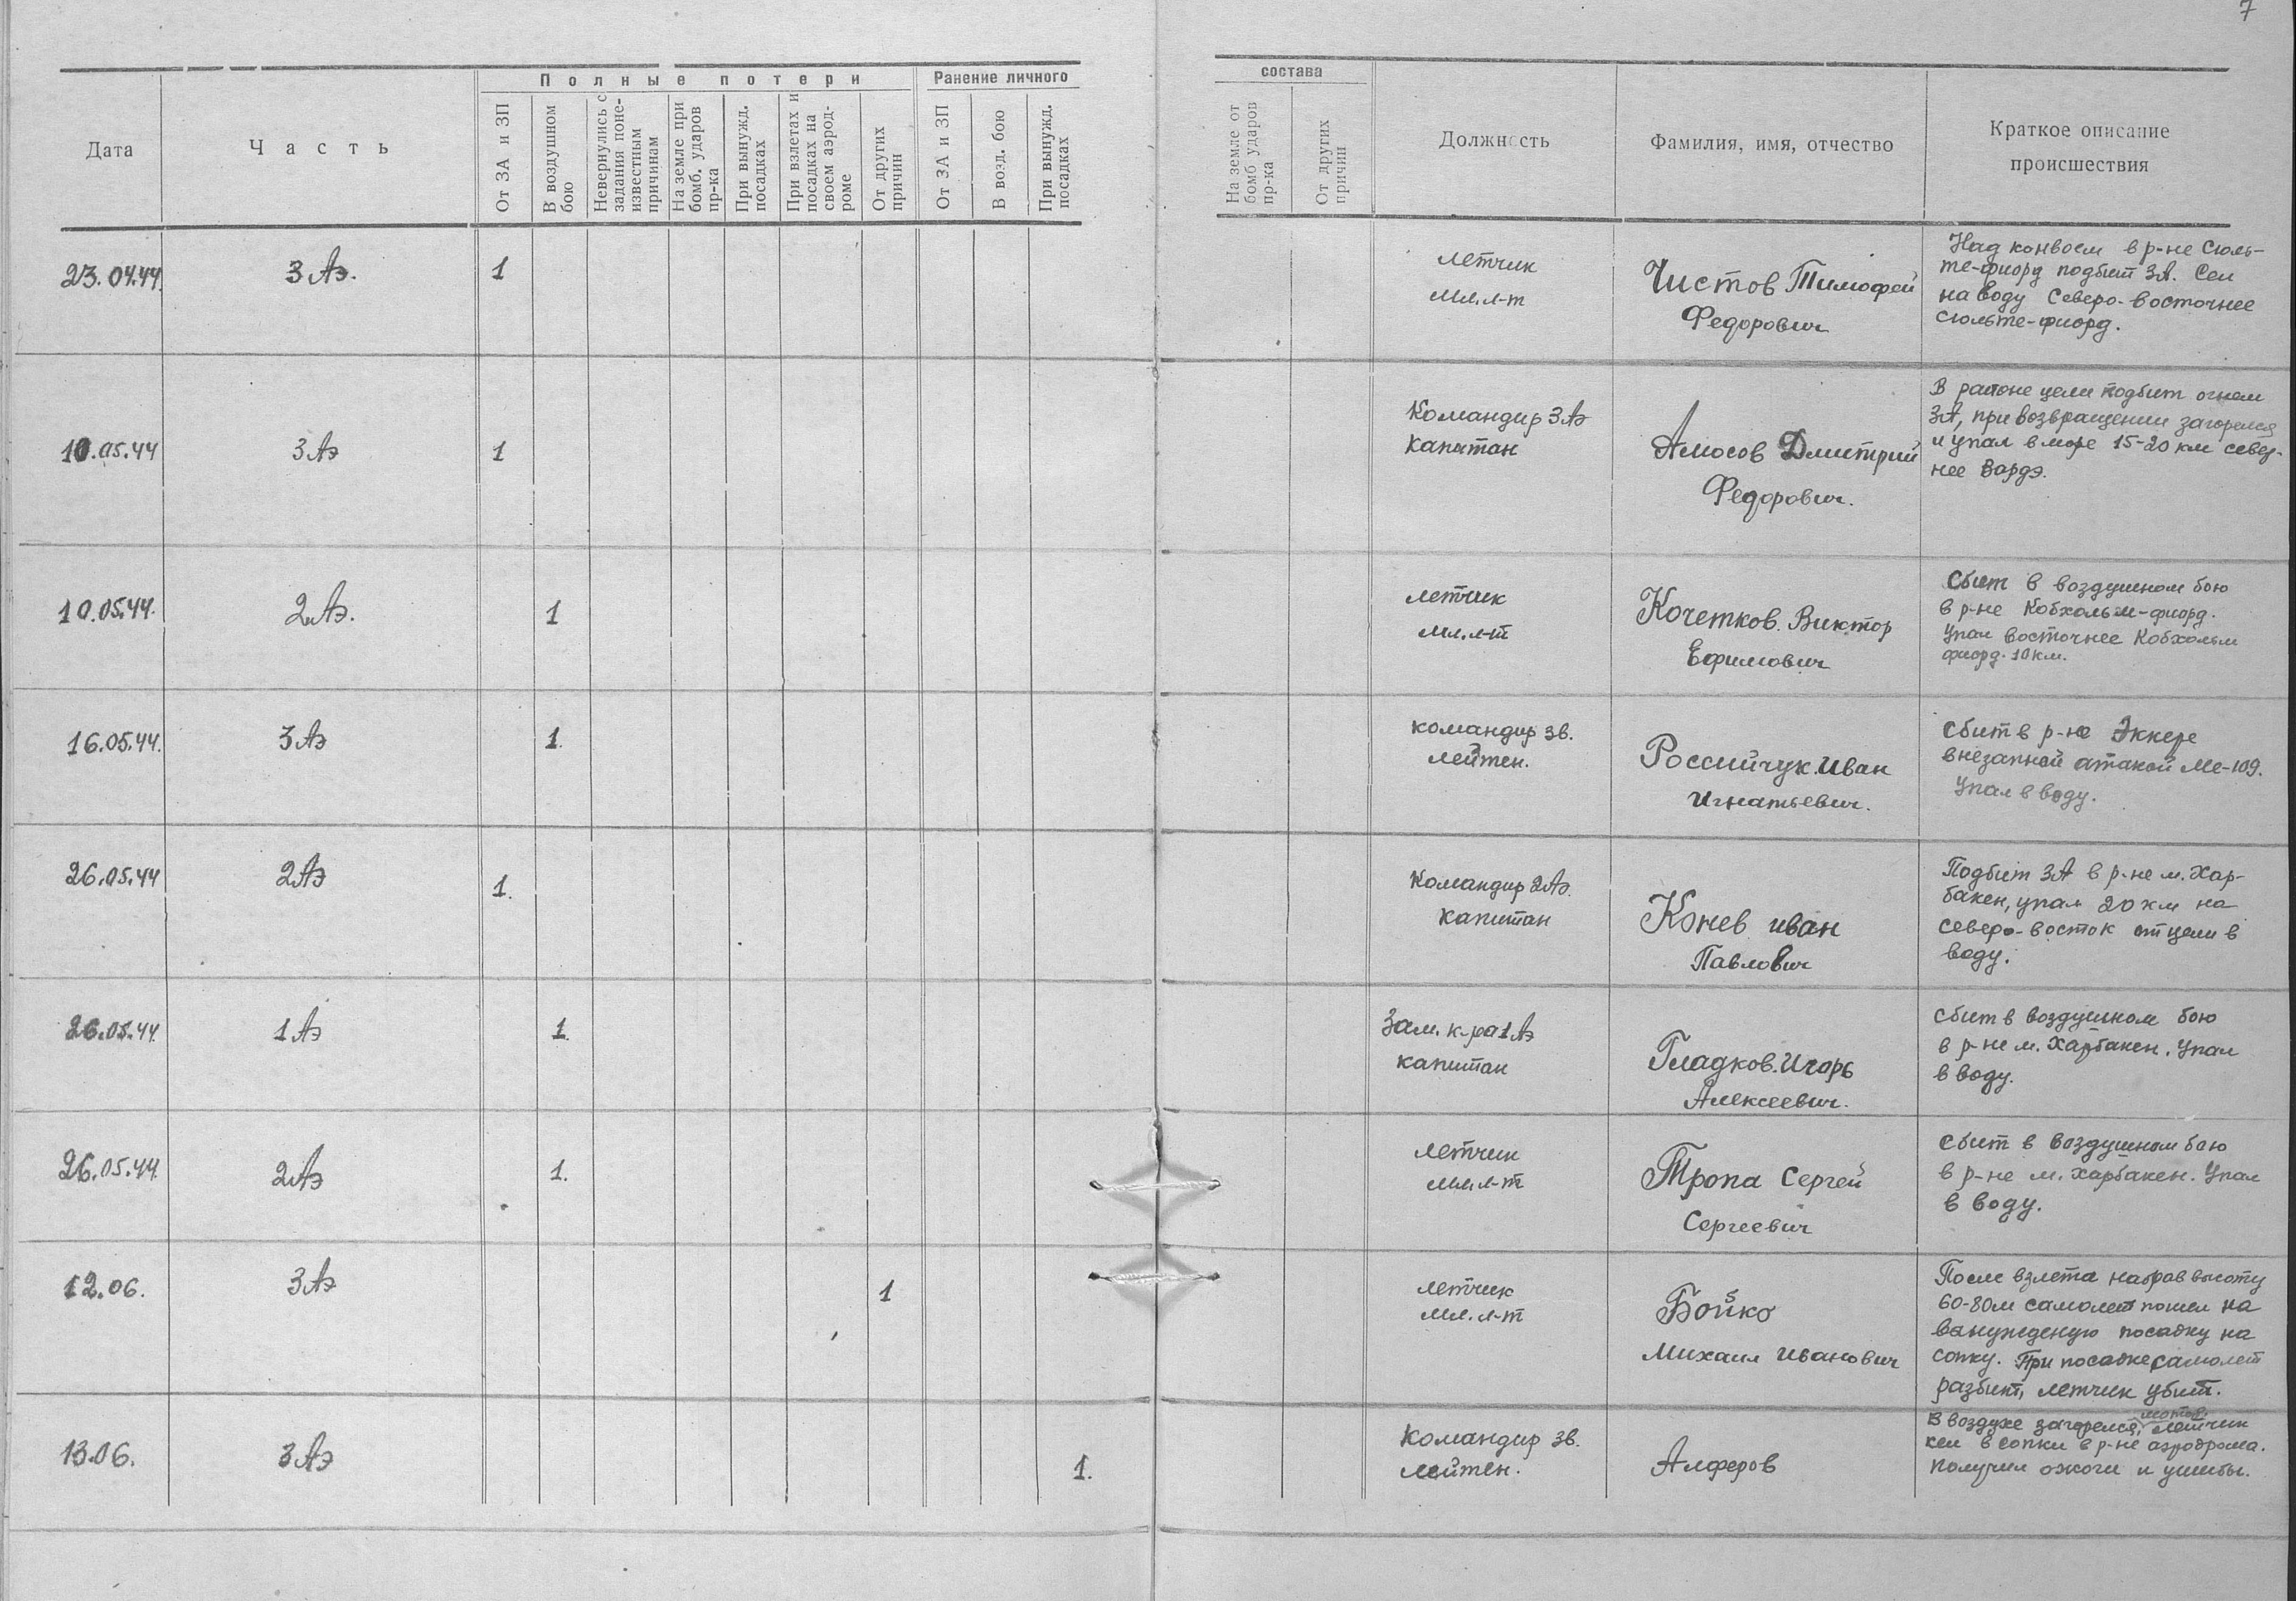 7
Полные потери
Ранение личного
состава
Дата
Часть
От ЗА и ЗП
В воздушном
бою
Невернулись с
задания поне-
известным
причинам
На земле при
бомб. ударов
пр-ка
При вынужд.
посадках
При взлетах и
посадках на
своем аэрод-
роме
От других
причин
От ЗА и ЗП
В возд. бою
При вынужд.
посадках
На земле от
бомб ударов
пр-ка
От других
причин
Должность
Фамилия, имя, отчество
Краткое описание
происшествия
23.04.44.
3 Аэ.
1
летчик
мл. л-т
Чистов Тимофей
Федорович
Над конвоем в р-не Сюль-
те-фиорд подбит ЗА. Сел
на воду Северо-восточнее
Сюльте-фиорд.
10.05.44
3 Аэ
1
Командир 3 Аэ
Капитан
Амосов Дмитрий
Федорович.
В районе цели подбит огнем
ЗА, при возвращении загорелся
и упал в море 15-20 км север-
нее Вардэ.
10.05.44.
2 Аэ.
1
летчик
мл. л-т
Кочетков. Виктор
Ефимович
Сбит в воздушном бою
в р-не Кобхольм-фиорд.
Упал восточнее Кобхольм
фиорд. 10 км.
16.05.44.
3 Аэ
1.
командир зв.
лейтен.
Российчук. Иван
Игнатьевич.
Сбит в р-не Эккере
внезапной атакой Ме-109.
Упал в воду.
26.05.44
2 Аэ
1.
Командир 2 Аэ.
капитан
Конев иван
Павлович
Подбит ЗА в р-не м. Хар-
бакен, упал 20 км на
северо-восток от цели в
воду.
26.05.44.
1 Аэ
1.
Зам. к-ра 1 Аэ
капитан
Гладков. Игорь
Алексеевич.
сбит в воздушном бою
в р-не м. Харбакен. Упал
в воду.
26.05.44.
2 Аэ
1.
летчик
мл. л-т
Тропа Сергей
Сергеевич
сбит в воздушном бою
в р-не м. Харбакен. Упал
в воду.
12.06.
3 Аэ
1
летчик
мл. л-т
Бойко
Михаил Иванович
После взлета набрав высоту
60-80 м самолет пошел на
вынужденую посадку на
сопку. При посадке самолет
разбит, летчик убит.
13.06.
3 Аэ
1.
Командир зв.
лейтен.
Алферов
мотор.
В воздухе загорелся, летчик
сел в сопки в р-не аэродрома.
Получил ожоги и ушибы.